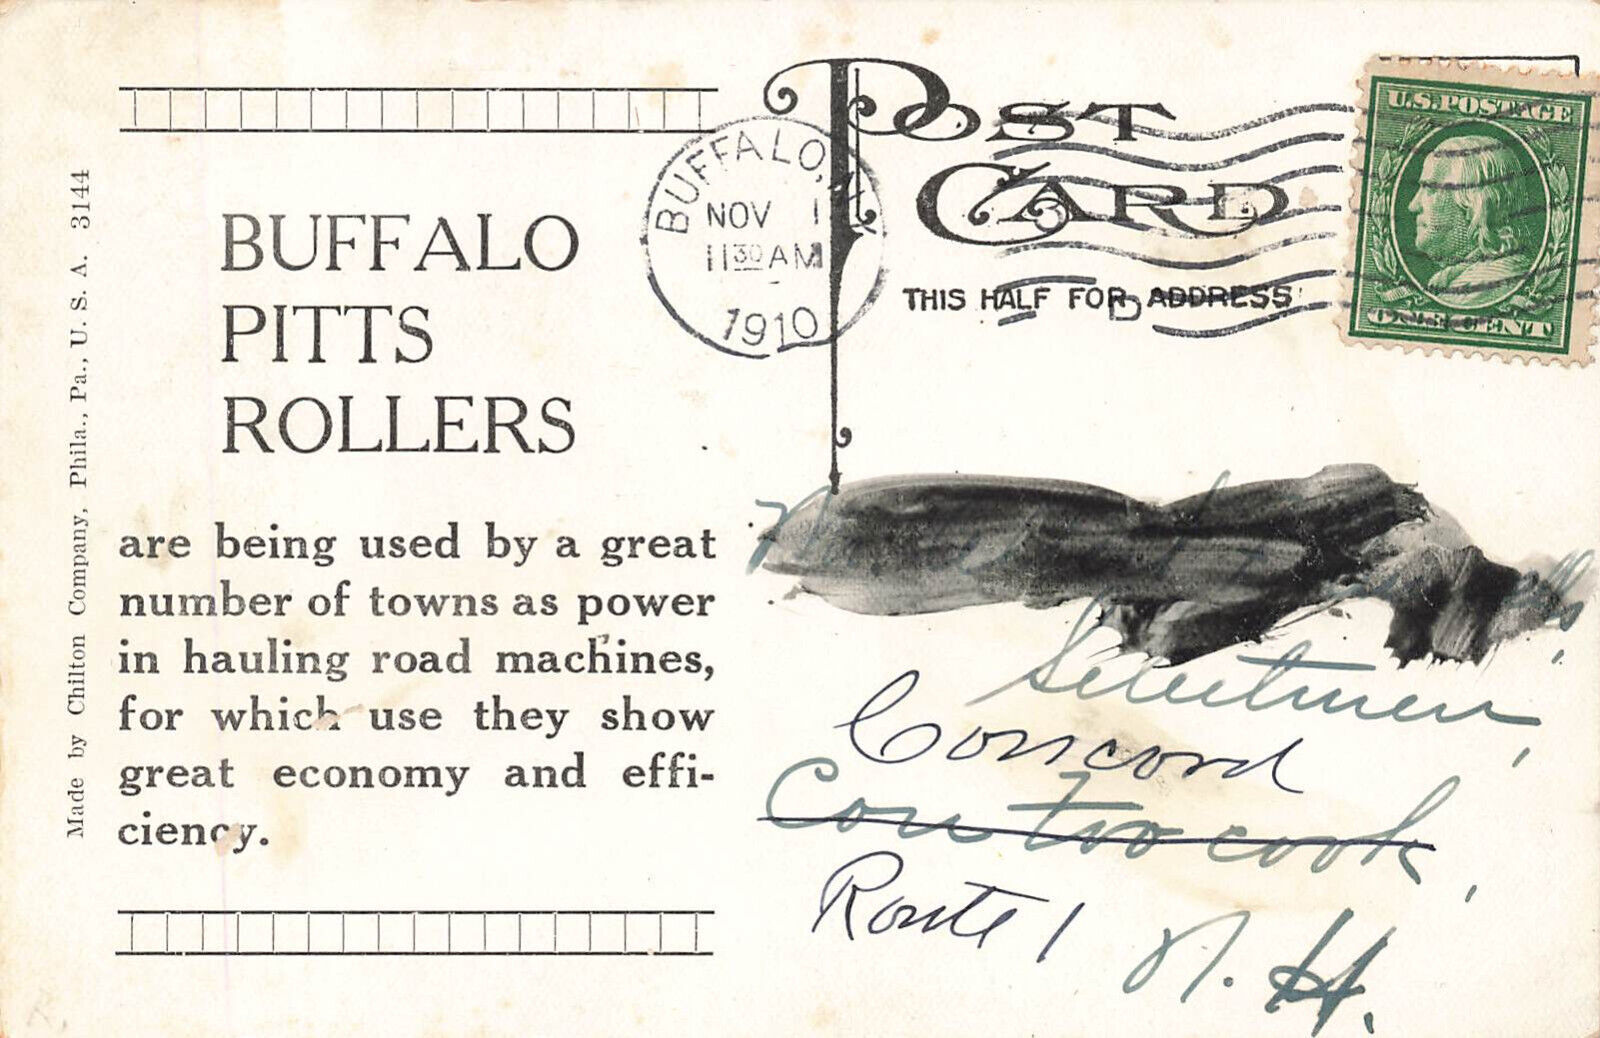 Made by Chilton Company, Phila., Pa., U. S. A. 3144
BUFFALO
PITTS
ROLLERS
are being used by a great
number of towns as power
in hauling road machines,
for which use they show
great economy and effi-
ciency.
POST
CARD
THIS HALF FOR ADDRESS
BUFFALO, N.Y.
NOV 1
11 30 AM
1910
D
U.S. POSTAGE
ONE CENT
Selectmen,
Concord
Contoocook,
Route 1
N. H.